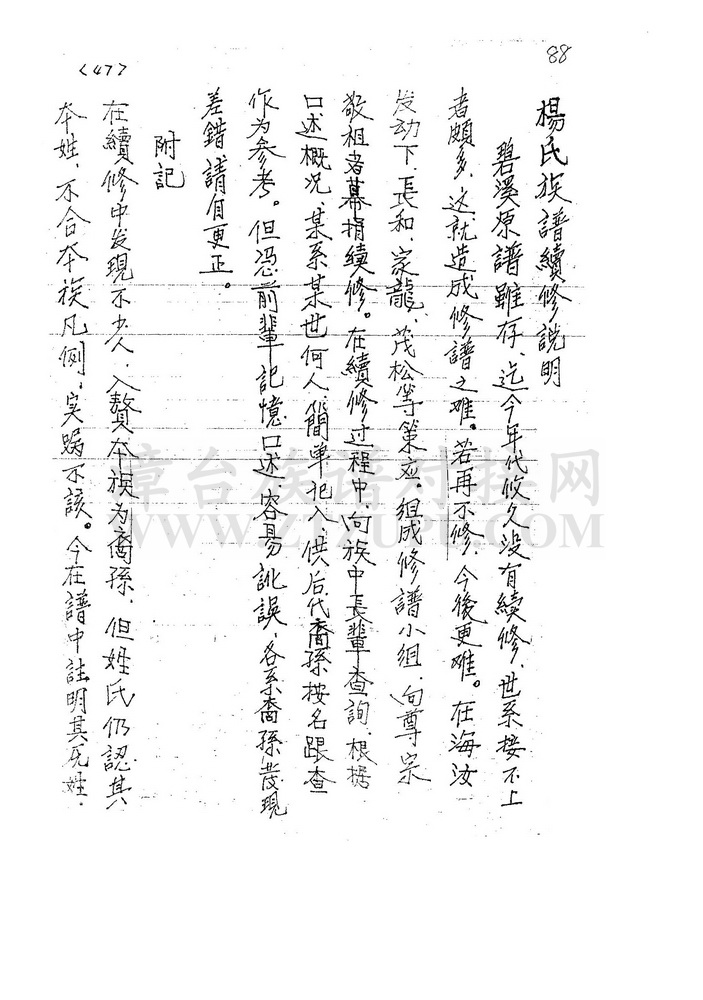 88
<47>
楊氏族譜續修説明
碧溪原譜雖存，迄今年代攸久没有續修，世系接不上
者頗多，这就造成修譜之难。若再不修，今後更难。在海汝
发动下，長和、家龍、茂松等策应，组成修譜小组，向尊宗
敬祖者募捐續修。在續修过程中，向族中長輩查詢，根据
口述概况，某系某世何人，簡单记入，供后代裔孫按名跟查
作为参考。但憑前輩记憶口述，容易訛誤，各系裔孫发現
差錯請自更正。
附記
在續修中发現不少人，入赘本族为裔孫，但姓氏仍認其
本姓，不合本族凡例，实属不该。今在譜中註明其死姓，
章台族谱对接网
WWW.ZTZUPU.COM